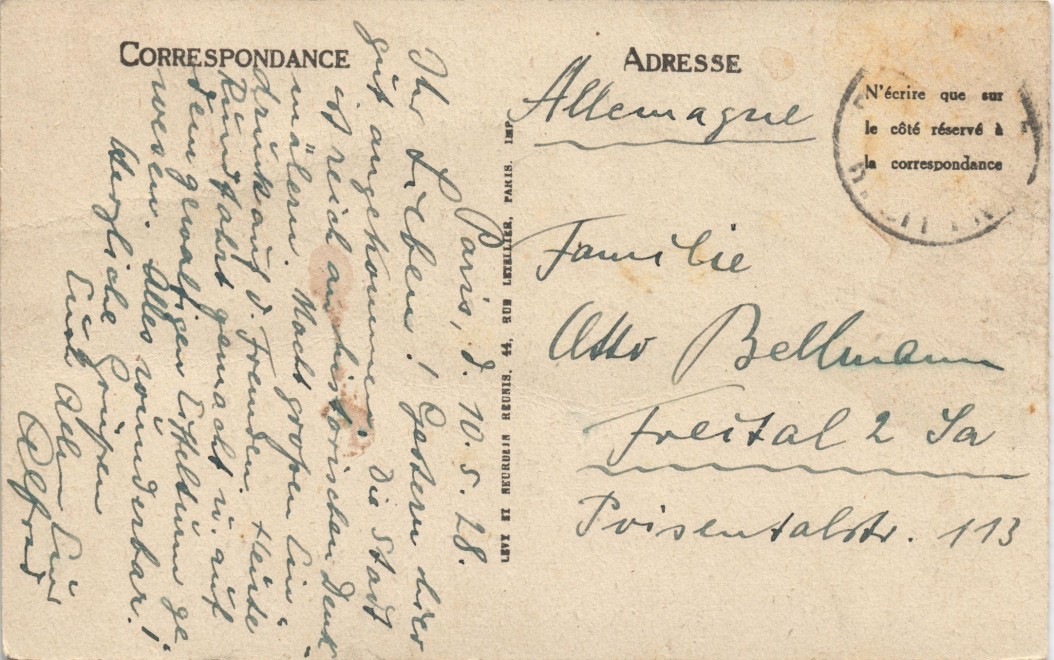 CORRESPONDANCE
Paris, d. 10. 5. 28.
Ihr Lieben! Gestern hier
gut angekommen. Die Stadt
ist reich an historischen Denk-
mälern. Macht großen Ein-
druck auf d. Fremden. Heute
Rundfahrt gemacht u. auf
dem gewaltigen Eiffelturm ge-
wesen. Alles wunderbar!
Herzliche Grüßen
Euch Allen Euer
Alfred
LEVY ET NEURDEIN REUNIS, 44, RUE LETELLIER, PARIS. IMP.
ADRESSE
N'écrire que sur
le côté réservé à
la correspondance
Allemagne
Familie
Otto Bellmann
Freital 2 Sa
Poisentalstr. 113